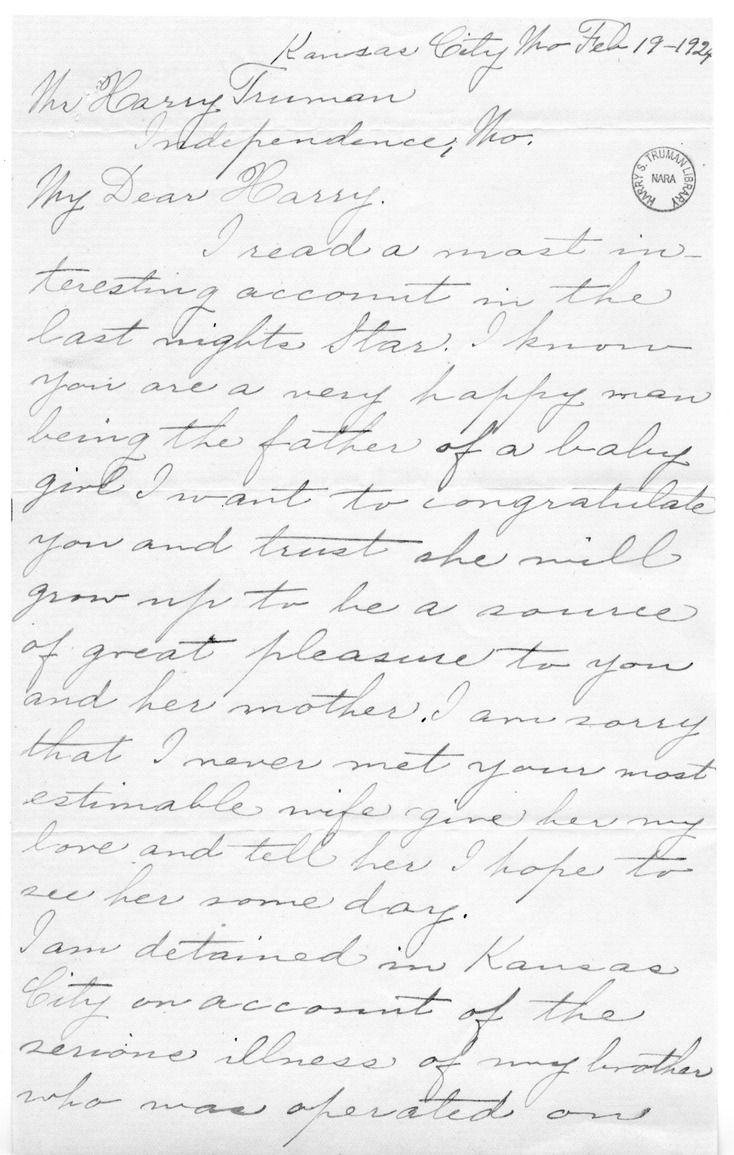 Kansas City Mo Feb 19-1924
Mr Harry Truman
Independence, Mo.
HARRY S. TRUMAN LIBRARY
NARA
My Dear Harry.
I read a most in-
teresting account in the
last nights Star. I know
you are a very happy man
being the father of a baby
girl I want to congratulate
you and trust she will
grow up to be a source
of great pleasure to you
and her mother. I am sorry
that I never met your most
estimable wife give her my
love and tell her I hope to
see her some day.
I am detained in Kansas
City on account of the
serious illness of my brother
who was operated on